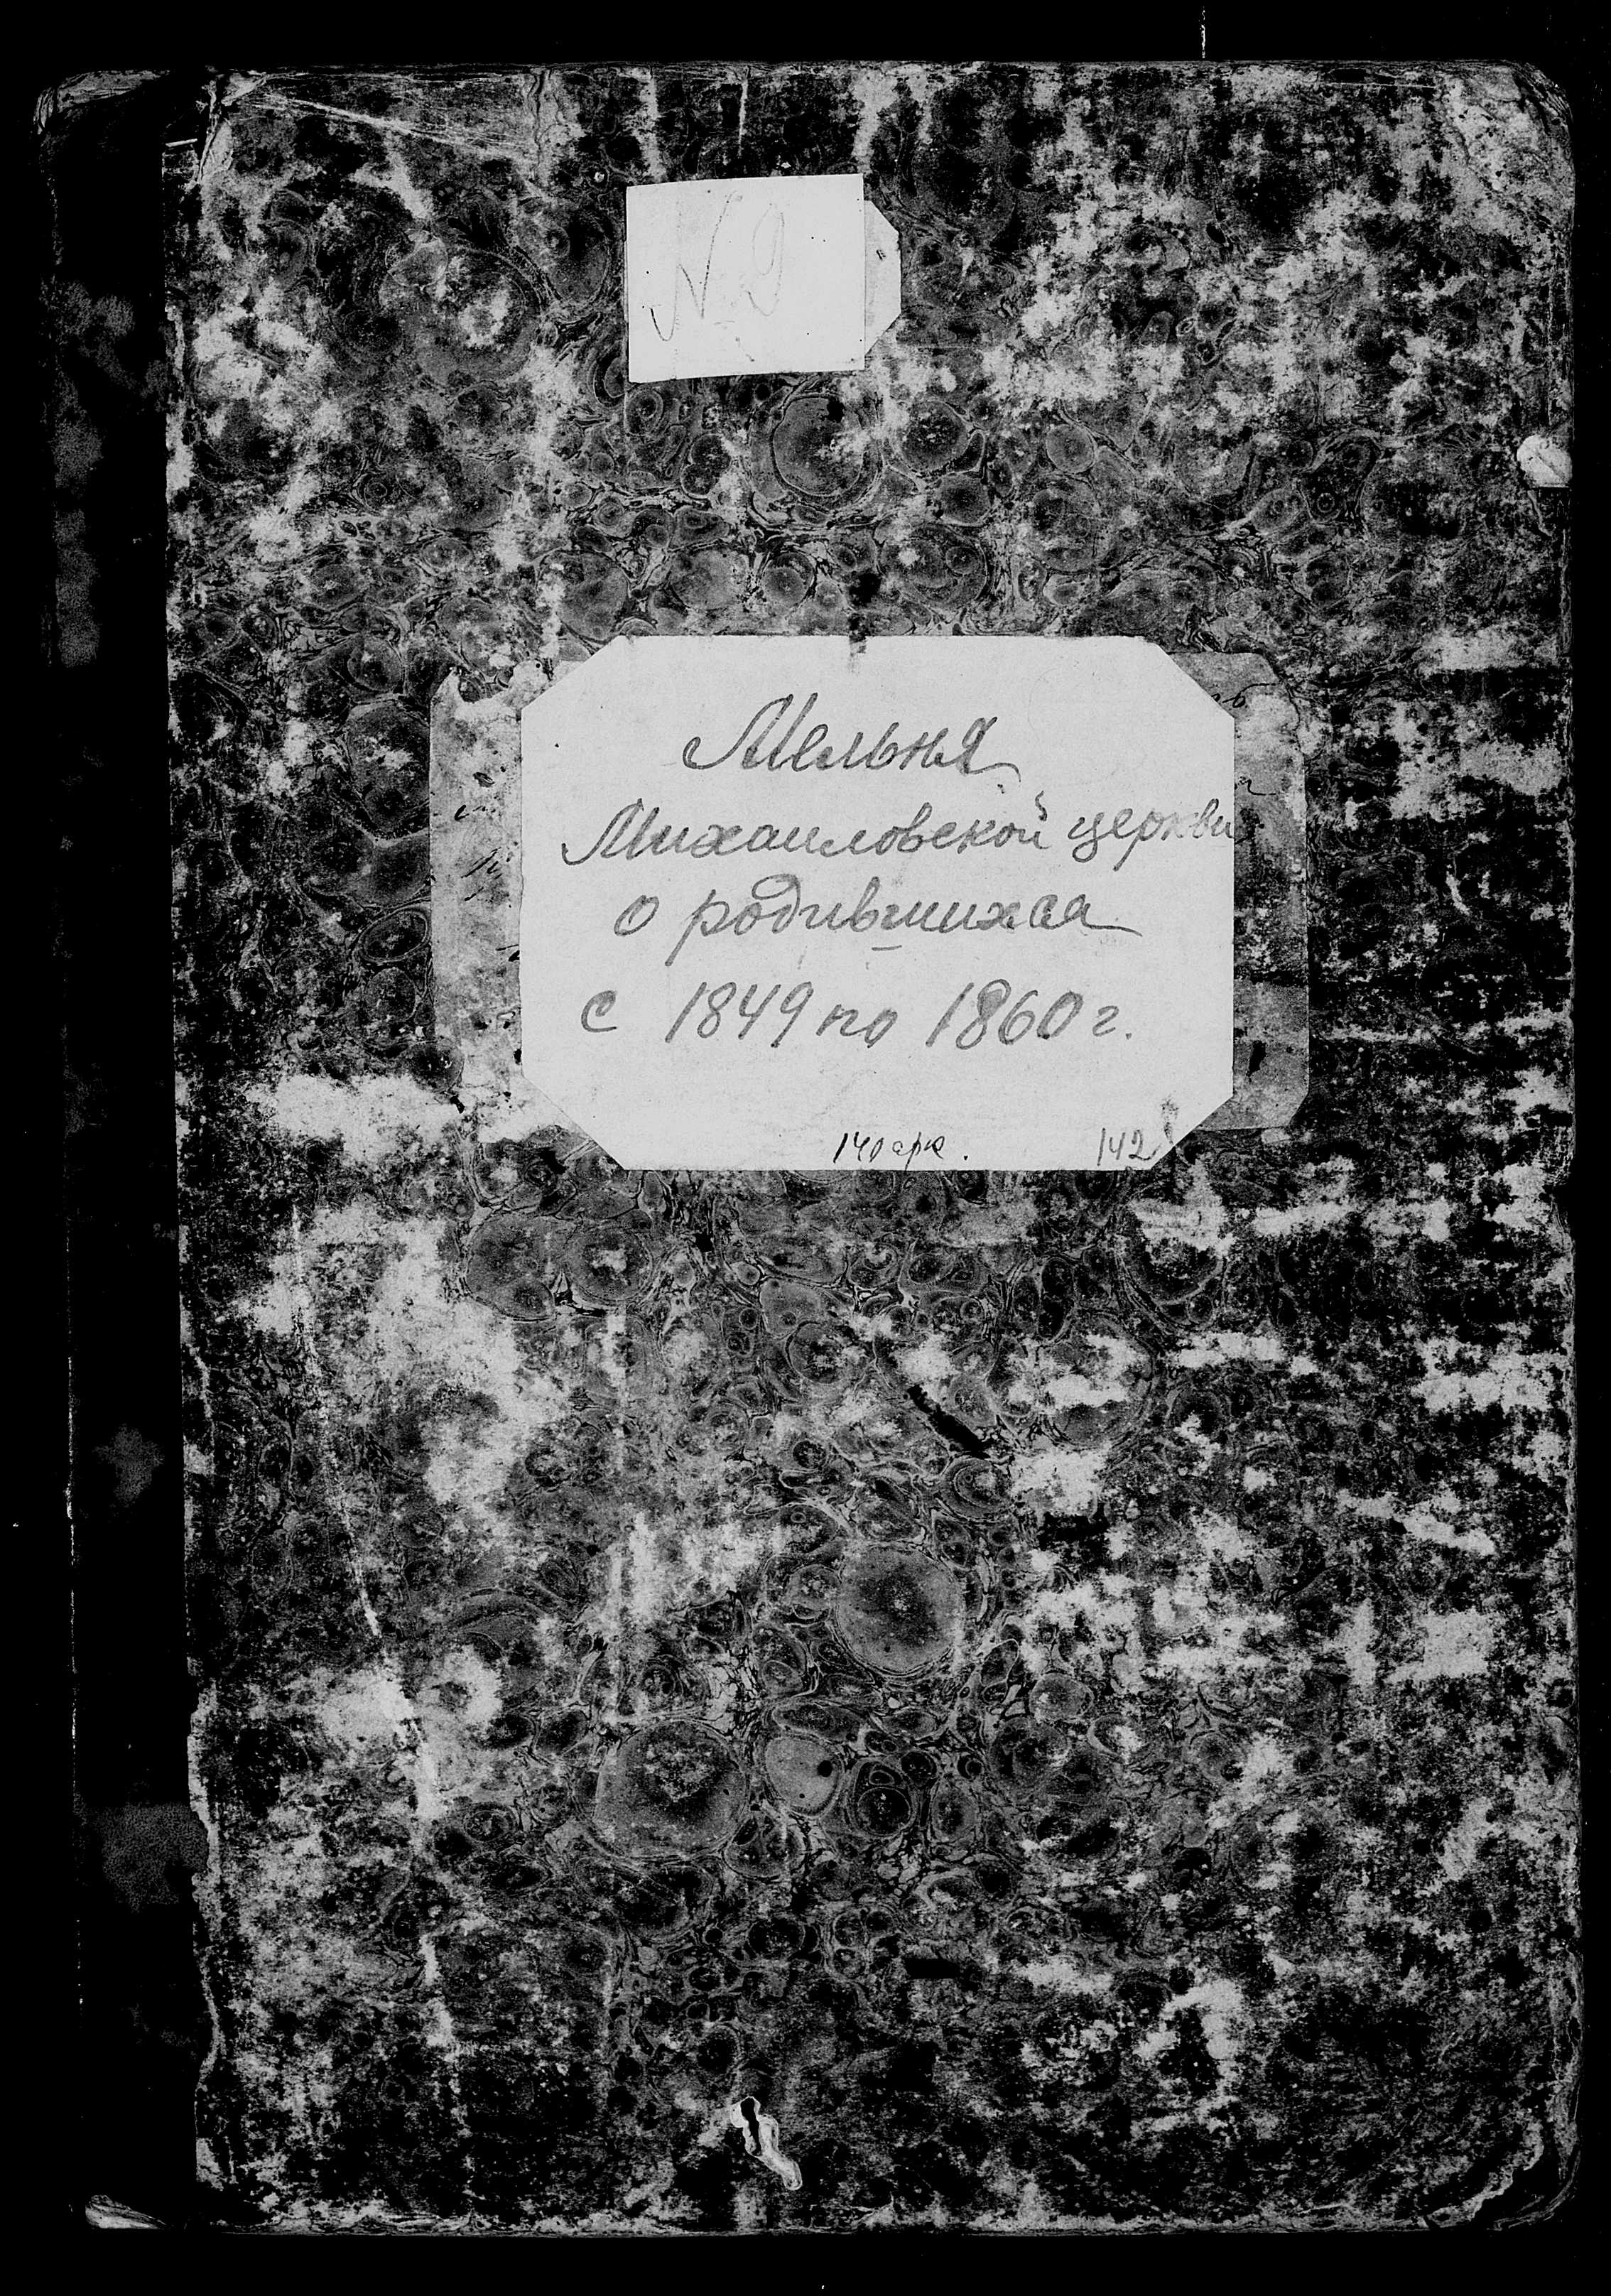 № 9
Мельня
Михаиловской церкви
о родившихся
с 1849 по 1860 г.
140 арк. 142